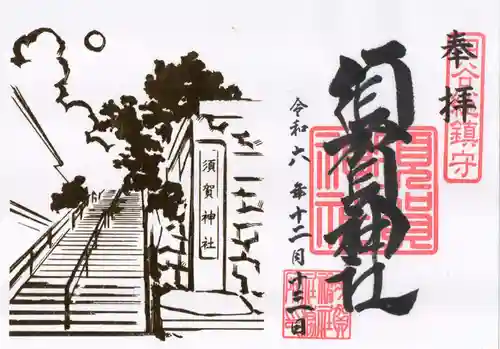 奉拝
四谷總鎮守
須賀神社
令和六年十二月廿二日
須賀神社